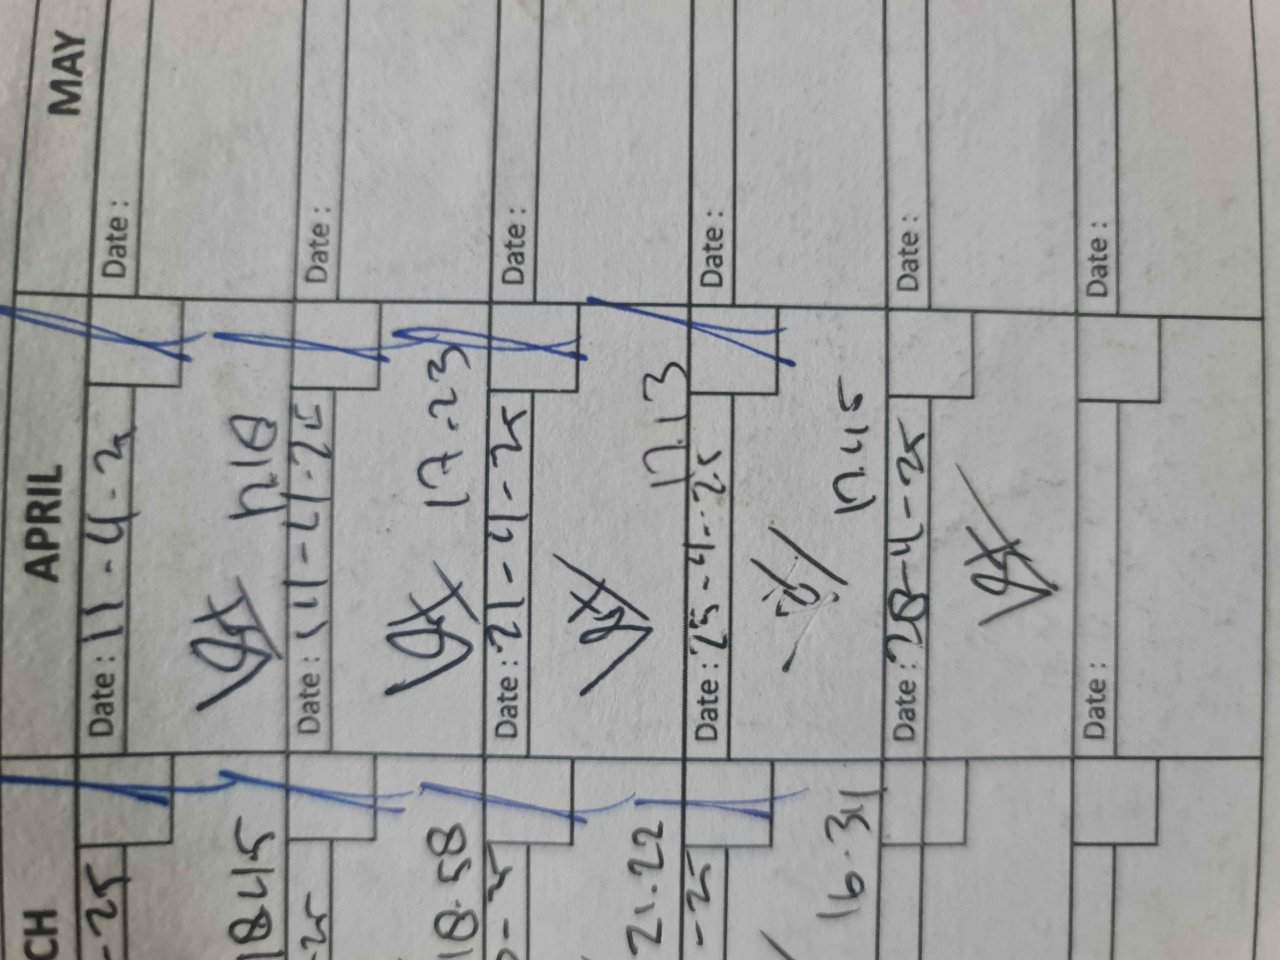 MAY
Date :
Date :
Date :
Date :
Date :
Date :
APRIL
Date : 11-4-25
17.18
Date : 11-4-25
17.23
Date : 21-4-25
17.13
Date : 25-4-25
17.45
Date : 28-4-25
Date :
CH
-25
18.45
-25
18.58
-25
21.22
-25
16.34